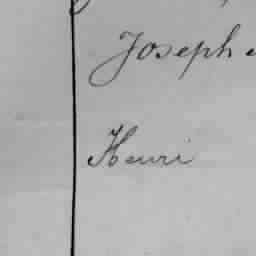 Joseph
Henri